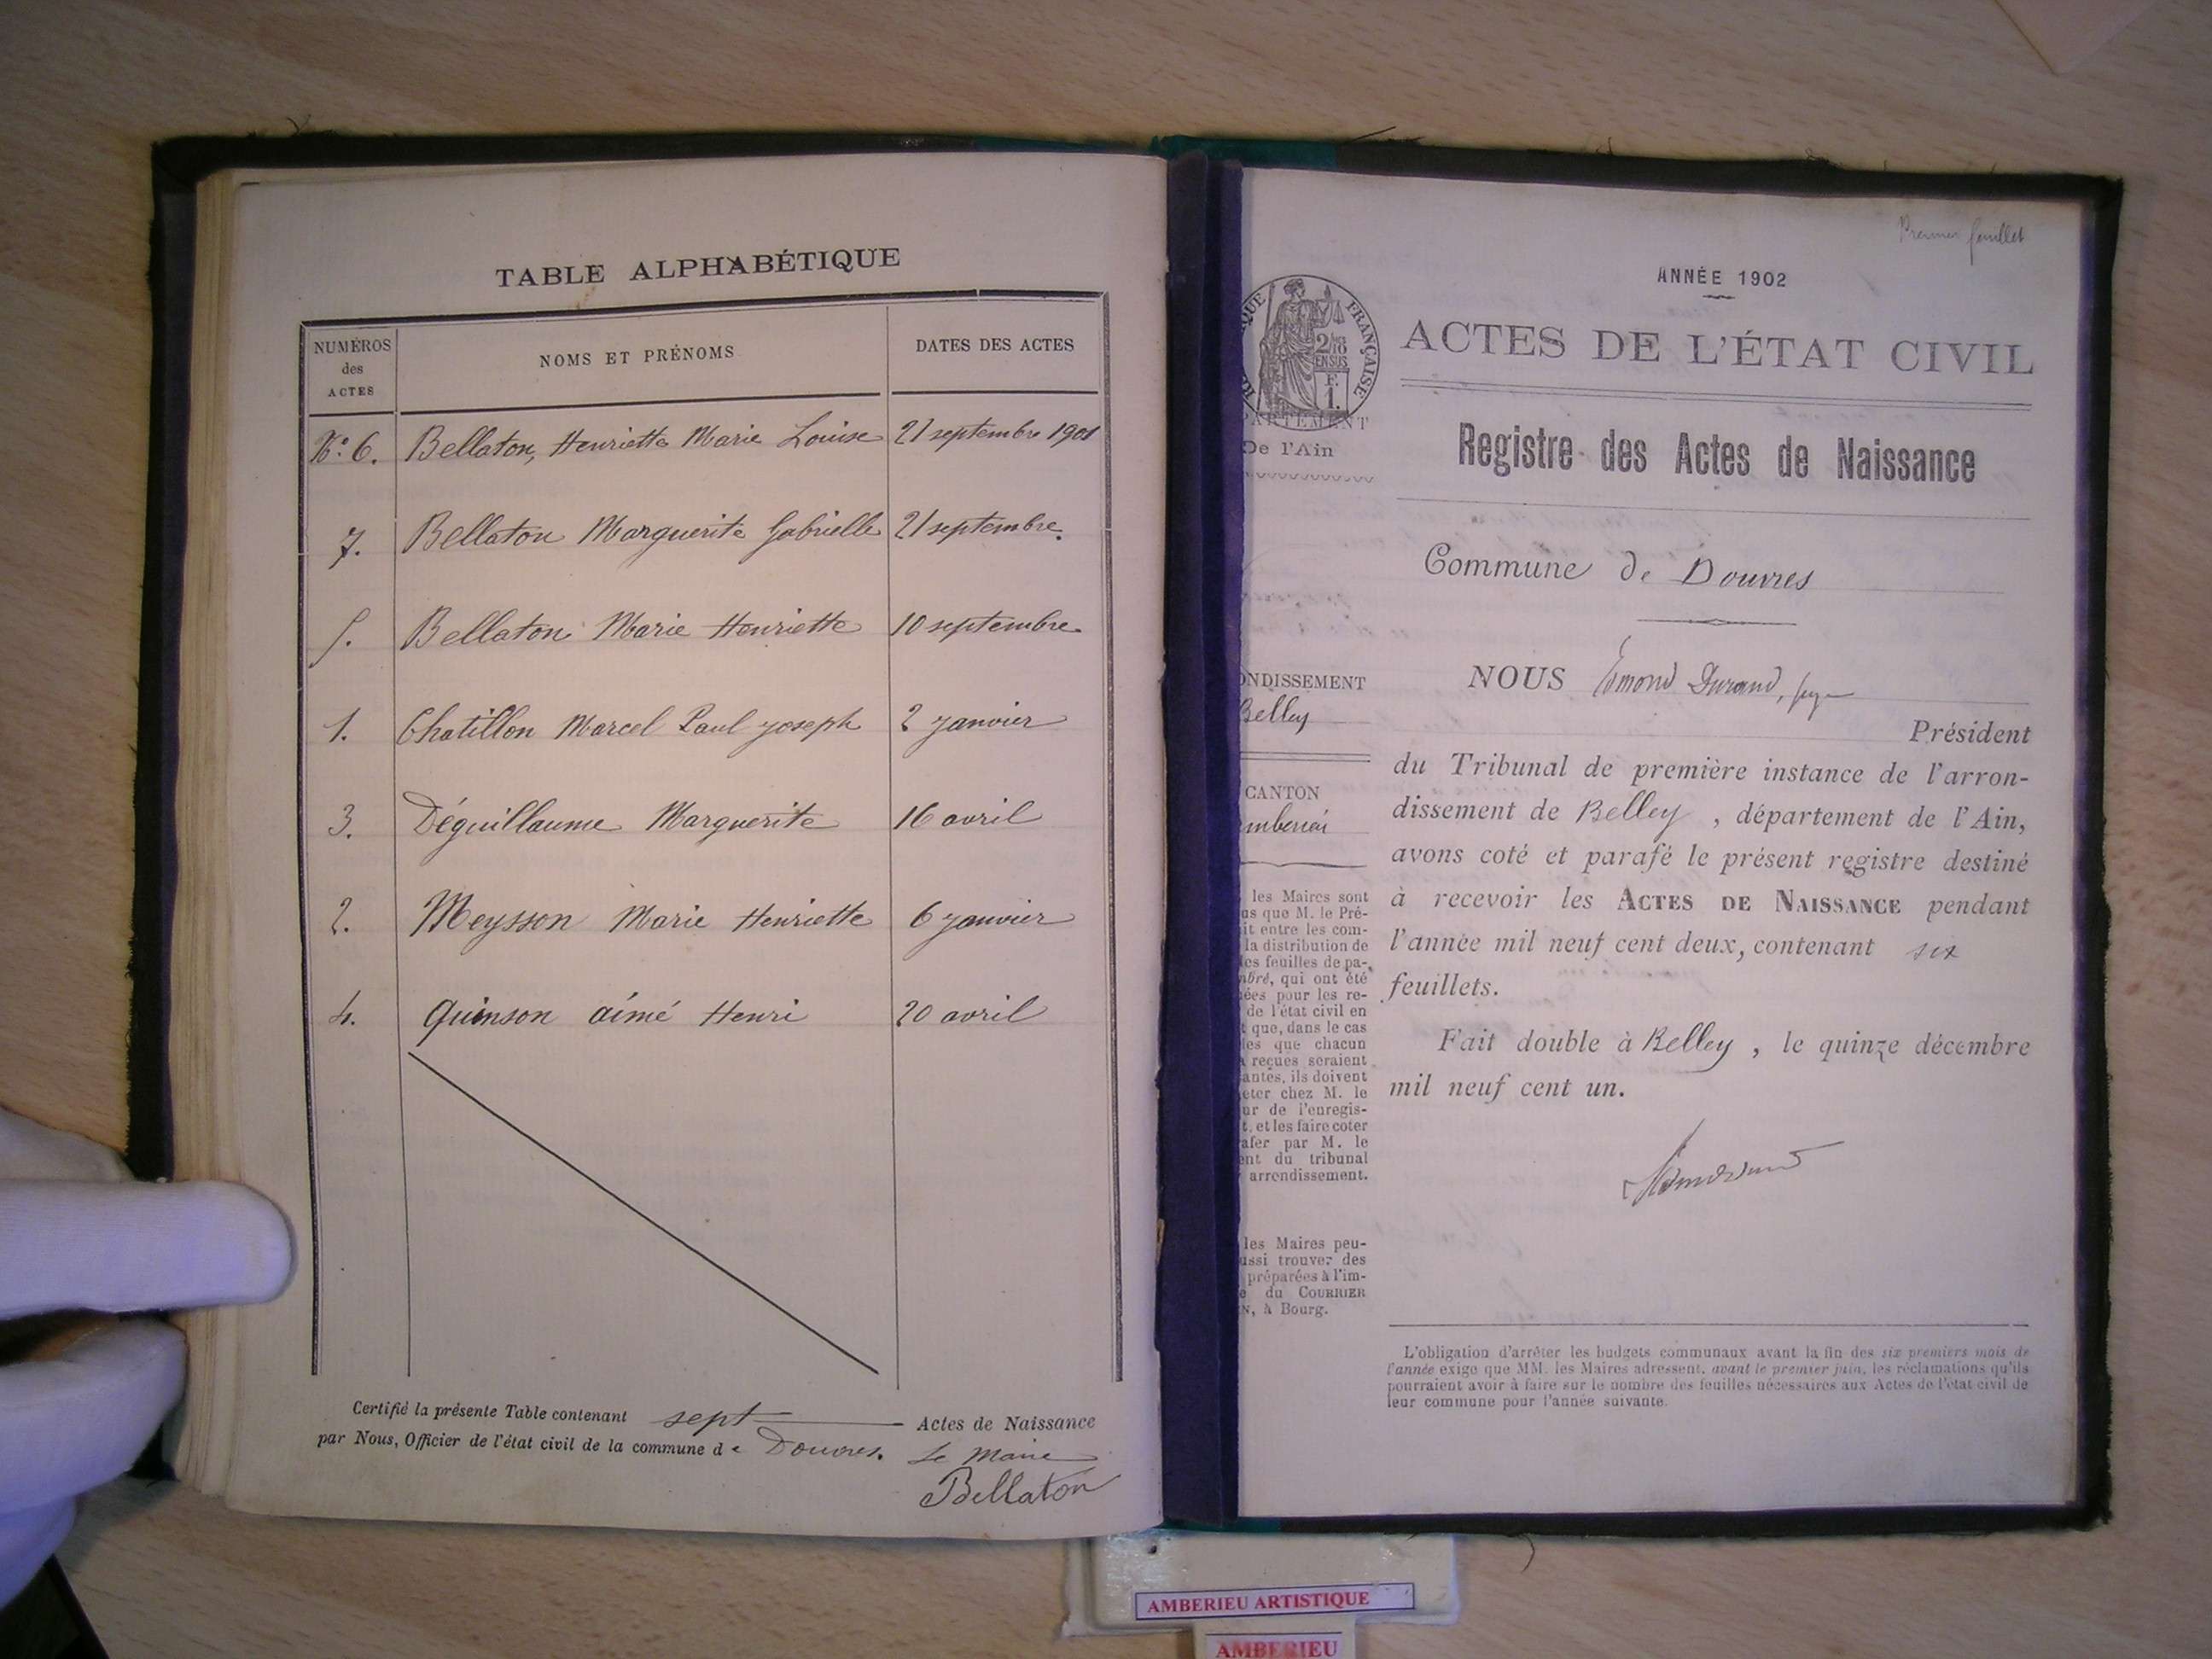 TABLE ALPHABÉTIQUE
NUMÉROS des ACTES
NOMS ET PRÉNOMS
DATES DES ACTES
N° 6. Bellaton, Henriette Marie Louise 21 septembre 1901
7. Bellaton Marguerite Gabrielle 21 septembre.
5. Bellaton Marie Henriette 10 septembre
1. Chatillon Marcel Paul Joseph 2 janvier
3. Déguillaume Marguerite 16 avril
2. Meysson Marie Henriette 6 janvier
4. Quinson aimé Henri 20 avril
Certifié la présente Table contenant sept Actes de Naissance
par Nous, Officier de l'état civil de la commune de Douvres. Le Maire
Bellaton
Premier feuillet
ANNÉE 1902
QUE FRANÇAISE
2/10
EN SUS
F.
1.
PARTEMENT
De l'Ain
ONDISSEMENT
Belley
CANTON
mberieu
les Maires sont
us que M. le Pré-
it entre les com-
la distribution de
les feuilles de pa-
mbré, qui ont été
ées pour les re-
de l'état civil en
t que, dans le cas
les que chacun
a reçues seraient
antes, ils doivent
eter chez M. le
ur de l'enregis-
t, et les faire coter
afer par M. le
ent du tribunal
arrondissement.
les Maires peu-
ussi trouver des
préparées à l'im-
e du COURRIER
N, à Bourg.
ACTES DE L'ÉTAT CIVIL
Registre des Actes de Naissance
Commune de Douvres
NOUS Edmond Durand, juge
Président
du Tribunal de première instance de l'arron-
dissement de Belley, département de l'Ain,
avons coté et parafé le présent registre destiné
à recevoir les ACTES DE NAISSANCE pendant
l'année mil neuf cent deux, contenant six
feuillets.
Fait double à Belley, le quinze décembre
mil neuf cent un.
L'obligation d'arrêter les budgets communaux avant la fin des six premiers mois de
l'année exige que MM. les Maires adressent, avant le premier juin, les réclamations qu'ils
pourraient avoir à faire sur le nombre des feuilles nécessaires aux Actes de l'état civil de
leur commune pour l'année suivante.
AMBERIEU ARTISTIQUE
AMBERIEU